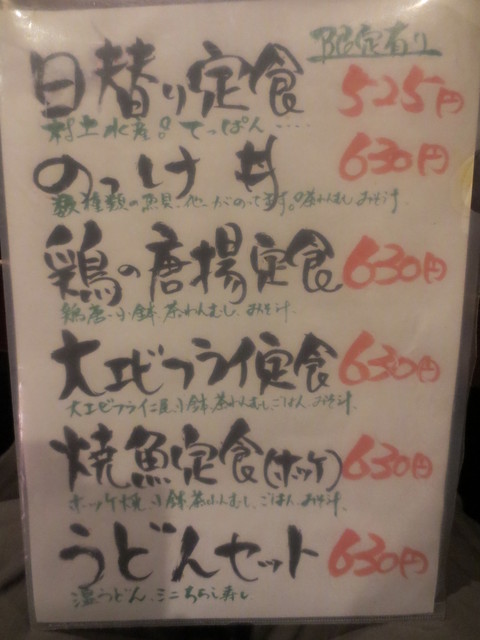 限定有り
日替り定食 525円
村上水産。てっぱん…
のっけ丼 630円
数種類の魚貝、他、がのってます。茶わんむし、おみそ汁
鶏の唐揚定食 630円
鶏唐、小鉢、茶わんむし、おみそ汁
大エビフライ定食 630円
大エビフライ二尾、小鉢、茶わんむし、ごはん、おみそ汁
焼魚定食(ホッケ) 630円
ホッケ焼、小鉢、茶わんむし、ごはん、おみそ汁
うどんセット 630円
うどん、ミニちらし寿し